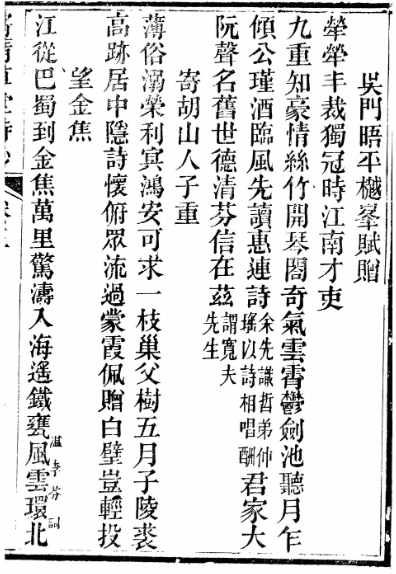 吳門晤平樾峯賦贈
犖犖丰裁獨冠時江南才吏
九重知豪情絲竹開琴閣奇氣雲霄鬱劍池聽月乍
傾公瑾酒臨風先讀惠連詩余先識哲弟仲瑤以詩相唱酬君家大
阮聲名舊世德清芬信在茲謂寬夫先生
寄胡山人子重
薄俗溺榮利冥鴻安可求一枝巢父樹五月子陵裘
高跡居中隱詩懷俯眾流過蒙霞佩贈白璧豈輕投
望金焦
江從巴蜀到金焦萬里驚濤入海遙鐵甕風雲環北